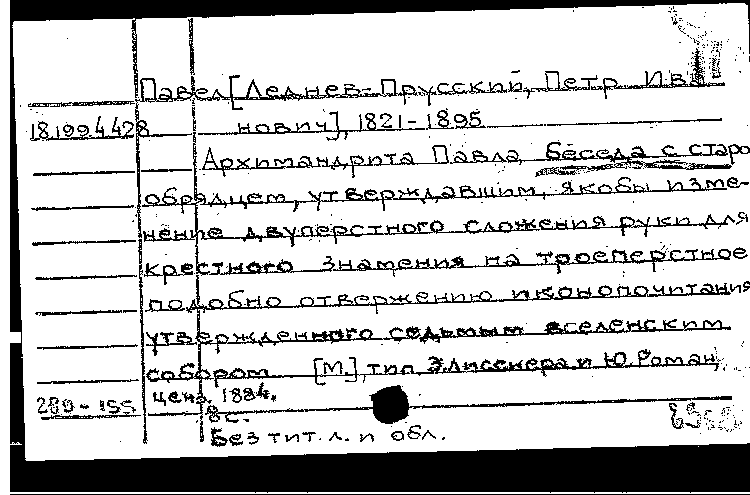 Павел [Леднев-Прусский, Петр Ива
18.199.4.428 нович], 1821-1895
Архимандрита Павла беседа с старо
обрядцем, утверждавшим, якобы изме-
нение двуперстного сложения руки для
крестного знамения на троеперстное
подобно отвержению иконопочитания
утвержденного седьмым вселенским
собором. [М.], тип. Элиснера и Ю. Роман,
289-155 ценз. 1884.
8 с.
Без тит. л. и обл.